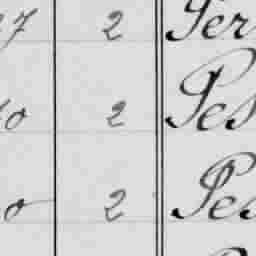 27 2 Per
0 2 Pes
0 2 Pes